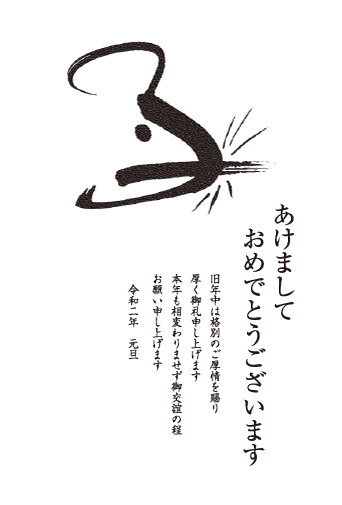 あけまして
おめでとうございます
旧年中は格別のご厚情を賜り
厚く御礼申し上げます
本年も相変わりませず御交誼の程
お願い申し上げます
令和二年 元旦